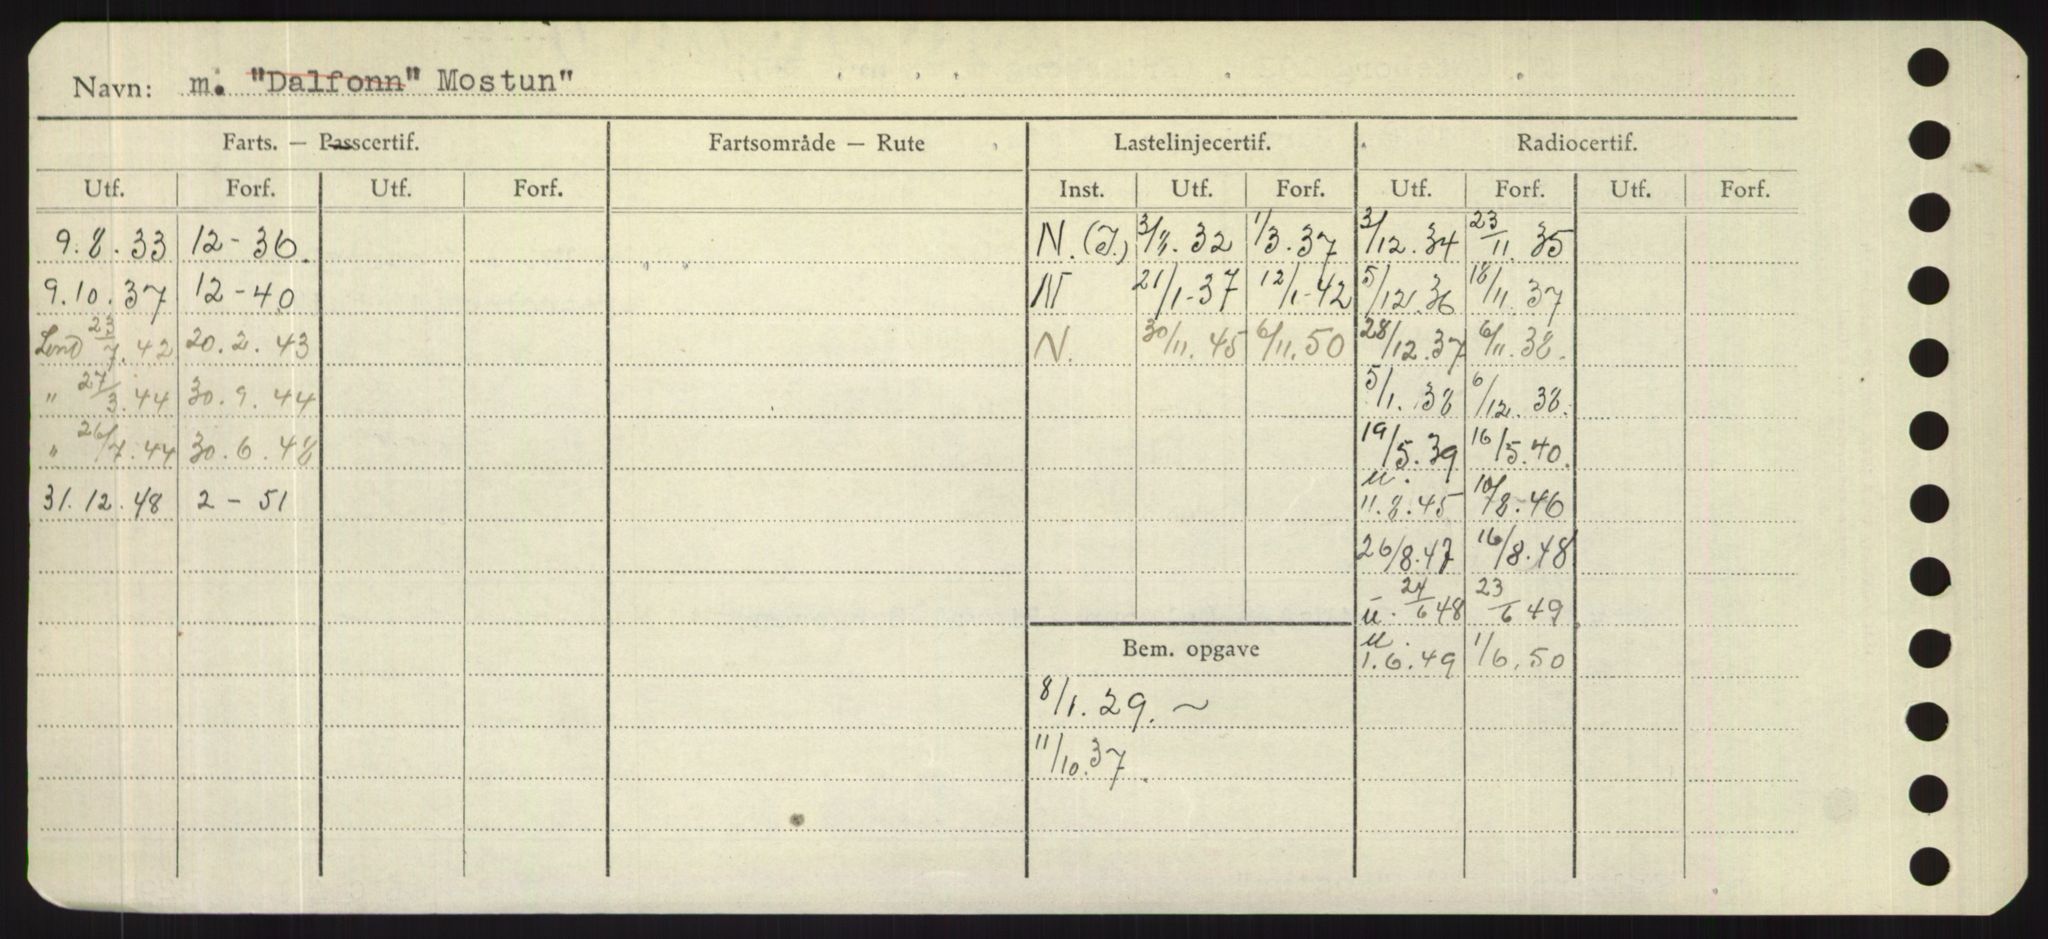 Navn: m. "Dalfonn" Mostun"
Farts. — Passcertif. Fartsområde — Rute Lastelinjecertif. Radiocertif.
Utf. Forf. Utf. Forf. Inst. Utf. Forf. Utf. Forf. Utf. Forf.
9.8.33 12-36. N.(I.) 3/8.32 1/3.37 3/12.34 23/11.35
9.10.37 12-40 N 21/1-37 12/1-42 5/12.36 18/11.37
Lond 23/7.42 20.2.43 N. 30/11.45 6/11.50 28/12.37 6/11.38.
" 27/3.44 30.9.44 5/1.38 6/12.38.
" 26/7.44 30.6.48 19/5.39 16/5.40.
31.12.48 2-51 u. 11.8.45 10/8.46
26/8.47 16/8.48
u. 24/6 48 23/6 49
Bem. opgave u. 1.6.49 1/6.50
8/1.29. ~
11/10.37.